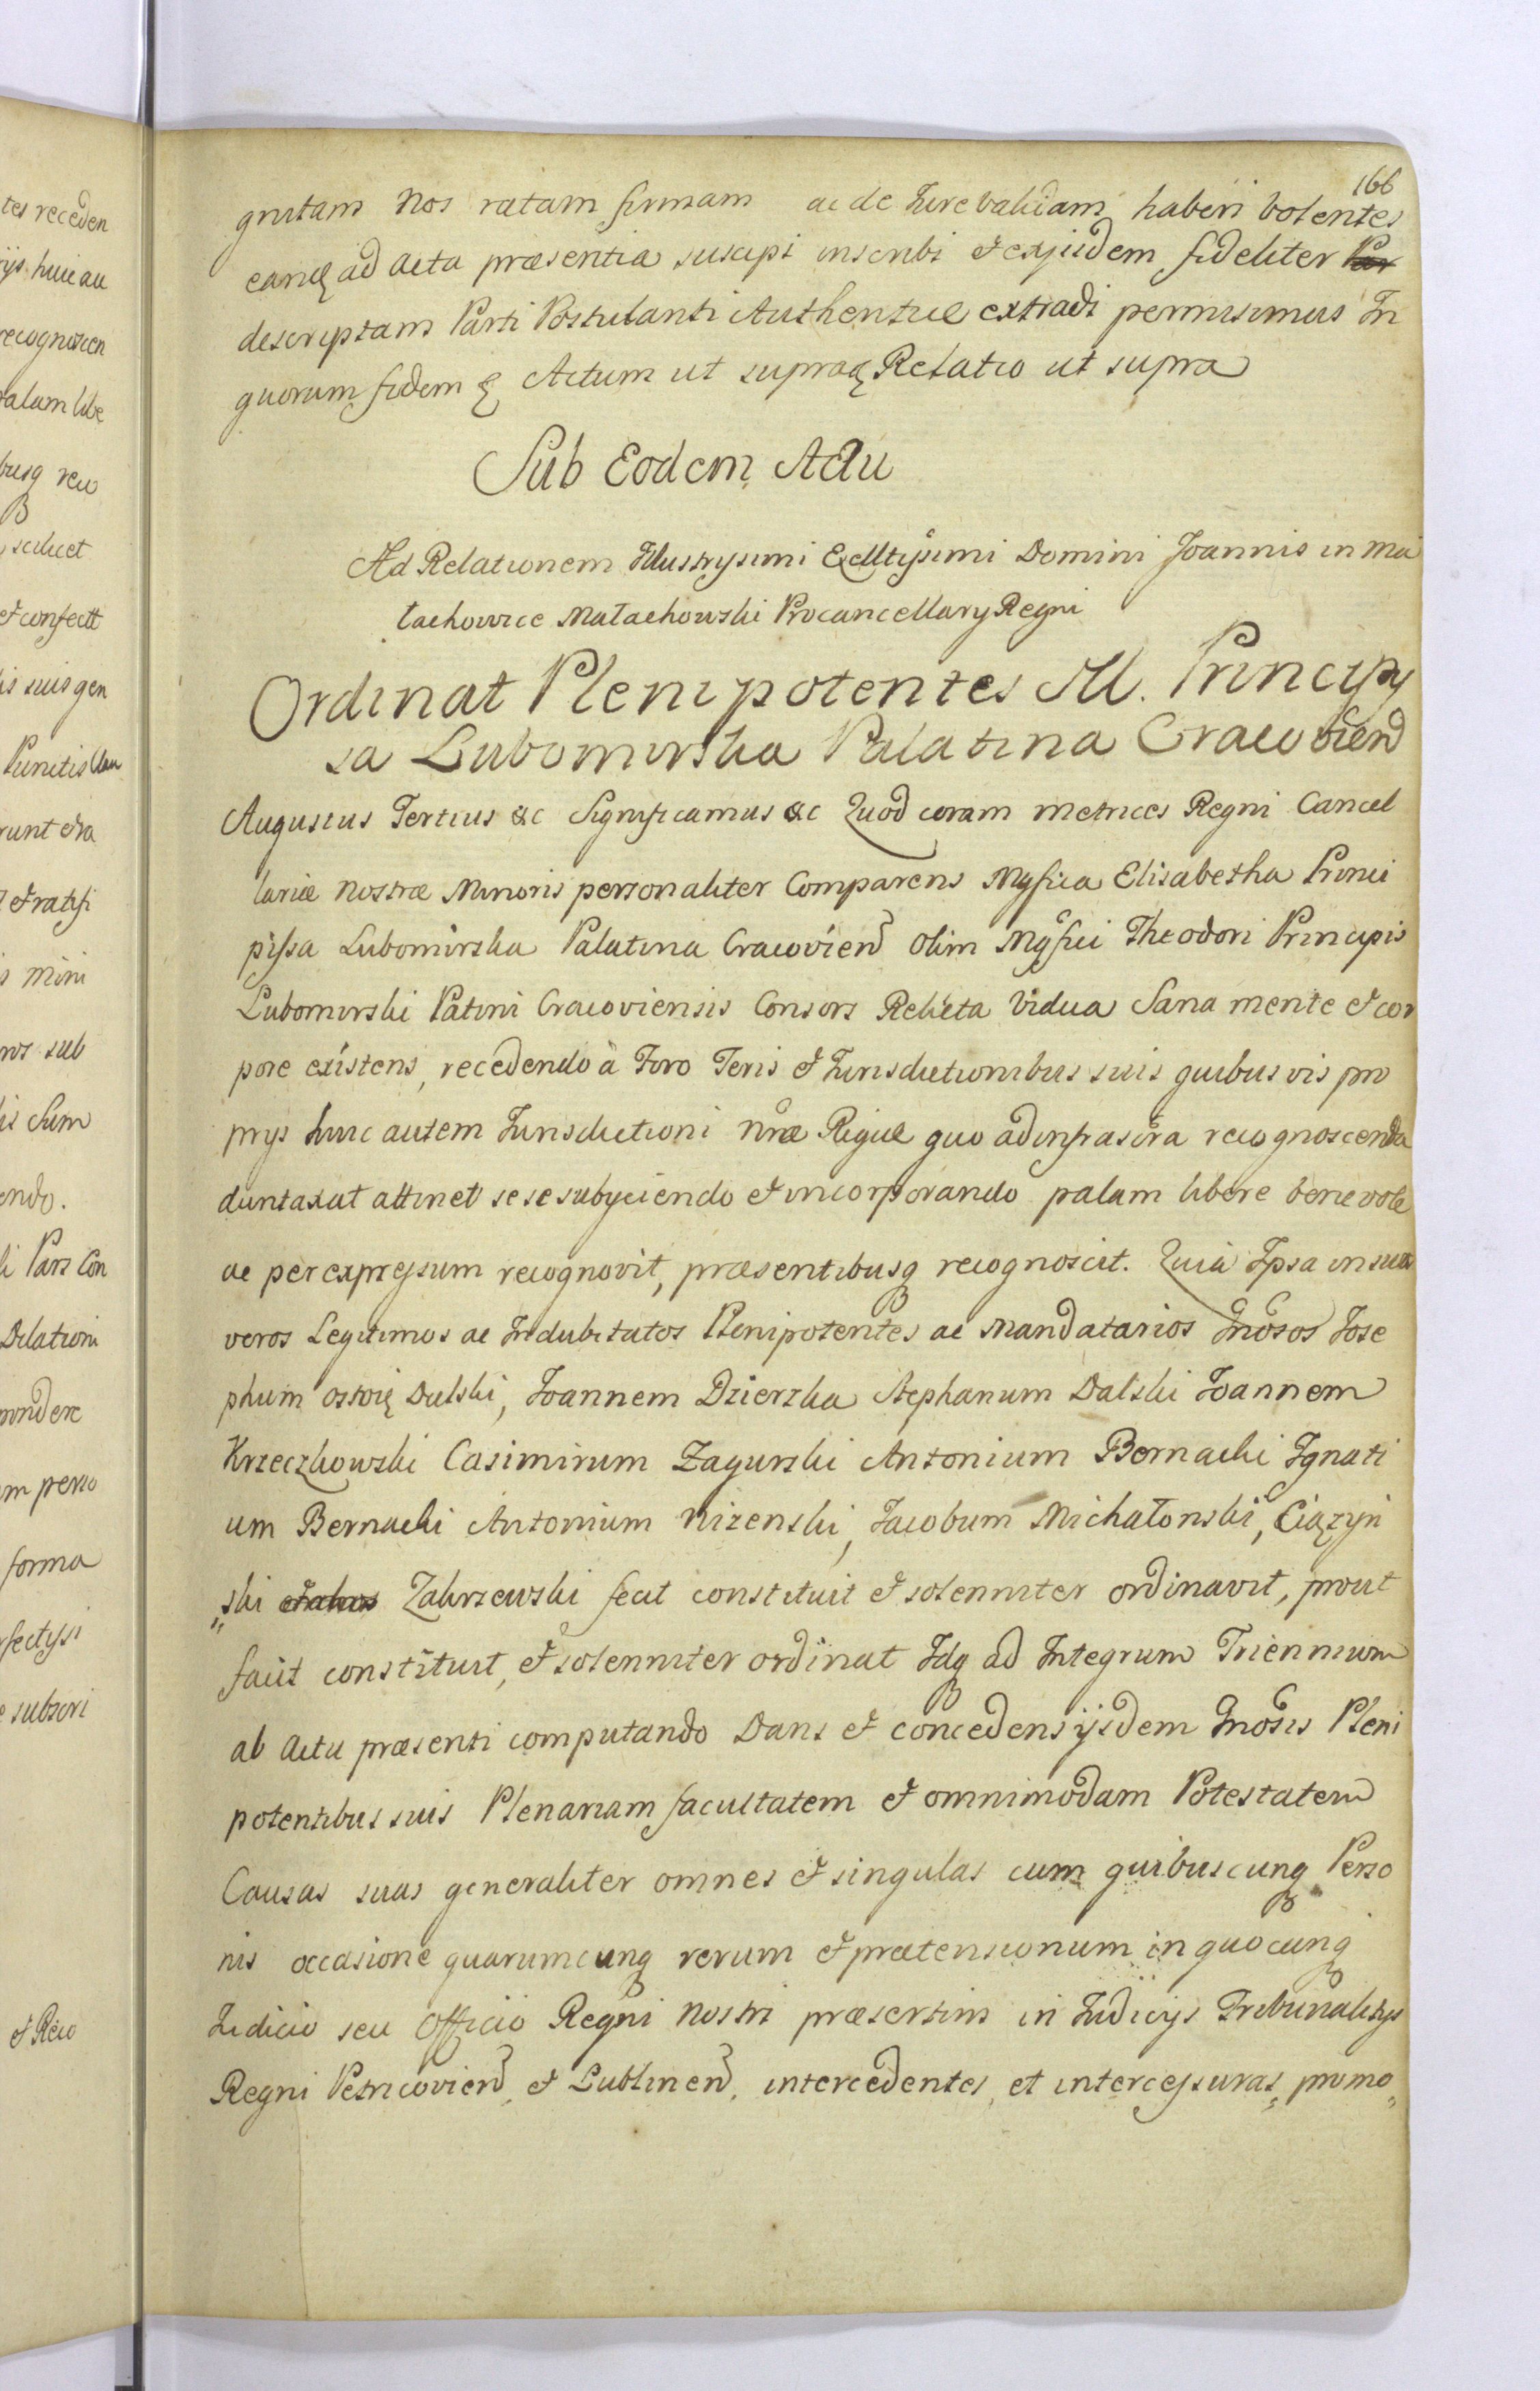 166
gnitam Nos ratam firmam ac de Jure validam haberi volentes
eamq ad Acta præsentia suscipi inscribi et exijsdem fideliter
descriptam Parti Postulanti Authentice extradi permisimus In
quorum fidem Actum ut supraq Relatio ut supra
Sub Eodem Actu
Ad Relationem Illustrysimi Excelltisimi Domini Joannis in Ma
łachowice Małachowski Procancellary Regni
Ordinat Plenipotentes M. Princypy
sa Lubomirska Palatina Cracovien
Augustus Tertius &c Significamus &c Quod coram metrices Regni Cancel
lariæ Nostræ Minoris personaliter Comparens Mgfica Elisabetha Princi
pissa Lubomirska Palatina Cracovien olim Mgfici Theodori Principis
Lubomirski Patini Cracoviensis Consors Relicta Vidua Sana mente et cor
pore existens, recedendo à Foro Teris et Jurisdictionibus suis quibus vis pro
prys huic autem Jurisdictioni nræ Rigiæ quo ad infrascra recognoscenda
duntaxat attinet se se subyciendo et incorporando palam libere benevole
ac per expressum recognovit, præsentibusq recognoscit. Quia Ipsa in suos
veros Legitimos ac Indubitatos Plenipotentes ac Mandatarios Gnosos Jose
phum Ossoię Dulski, Joannem Dzierzka Stephanum Dalski Joannem
Krzeczkowski Casimirum Zagurski Antonium Bernacki Ignati
um Bernacki Antonium Nizenski, Jacobum Michałonski, Ciązyn
ski et alios Zakrzewski fecit constituit et solenniter ordinavit, prout
facit constituit, et solenniter ordinat Idq ad Integrum Triennium
ab Actu præsenti computando Dans et concedens ijsdem Gnosis Pleni
potentibus suis Plenariam facultatem et omnimodam Potestatem
Causas suas generaliter omnes et singulas cum quibuscunq Perso
nis occasione quarumcunq rerum et prætensionum in quocunq
Judicio seu Officio Regni Nostri præsertim in Judicijs Tribunalitijs
Regni Petricovien, et Lublinen, intercedentes, et intercessuras, promo„